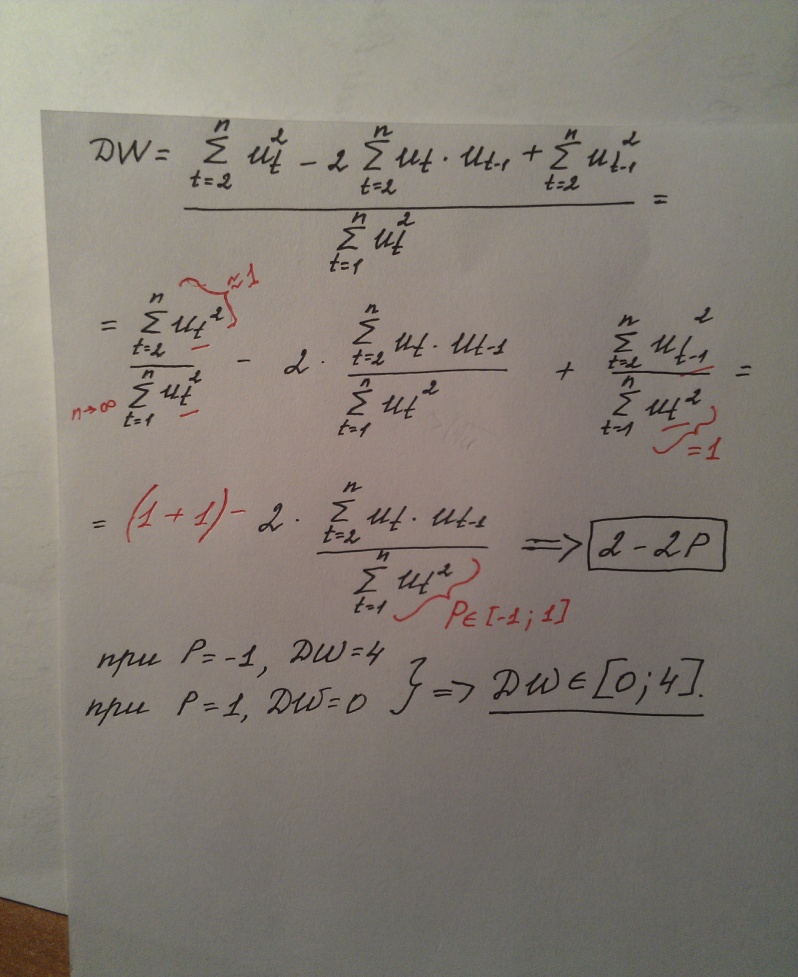 DW = (∑_{t=2}^{n} u_t^2 − 2 ∑_{t=2}^{n} u_t · u_{t-1} + ∑_{t=2}^{n} u_{t-1}^2) / (∑_{t=1}^{n} u_t^2) =
= (∑_{t=2}^{n} u_t^2) / (∑_{t=1}^{n} u_t^2) n→∞ ≈1 − 2 · (∑_{t=2}^{n} u_t · u_{t-1}) / (∑_{t=1}^{n} u_t^2) + (∑_{t=2}^{n} u_{t-1}^2) / (∑_{t=1}^{n} u_t^2) =1 =
= (1 + 1) − 2 · (∑_{t=2}^{n} u_t · u_{t-1}) / (∑_{t=1}^{n} u_t^2) P∈[-1; 1] ⇒ 2 − 2P
при P = -1, DW = 4
при P = 1, DW = 0 } ⇒ DW ∈ [0; 4].